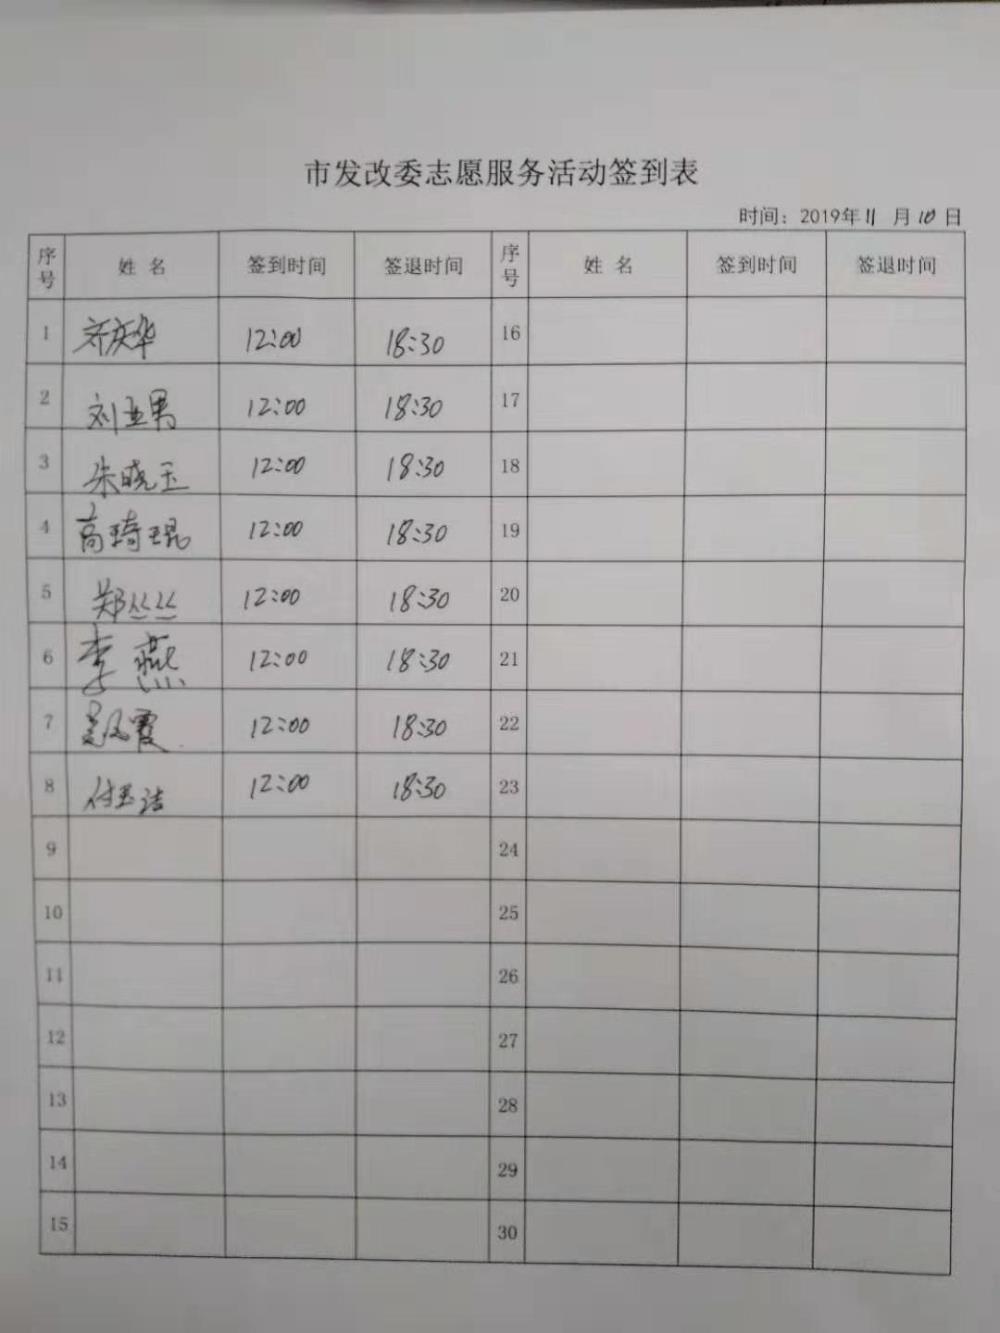 市发改委志愿服务活动签到表
时间：2019年11月10日
序号 姓名 签到时间 签退时间 序号 姓名 签到时间 签退时间
1 庆华 12:00 18:30 16
2 刘亚男 12:00 18:30 17
3 朱晓玉 12:00 18:30 18
4 高琦琨 12:00 18:30 19
5 郑丝丝 12:00 18:30 20
6 李燕 12:00 18:30 21
7 霞 12:00 18:30 22
8 付玉洁 12:00 18:30 23
9 24
10 25
11 26
12 27
13 28
14 29
15 30